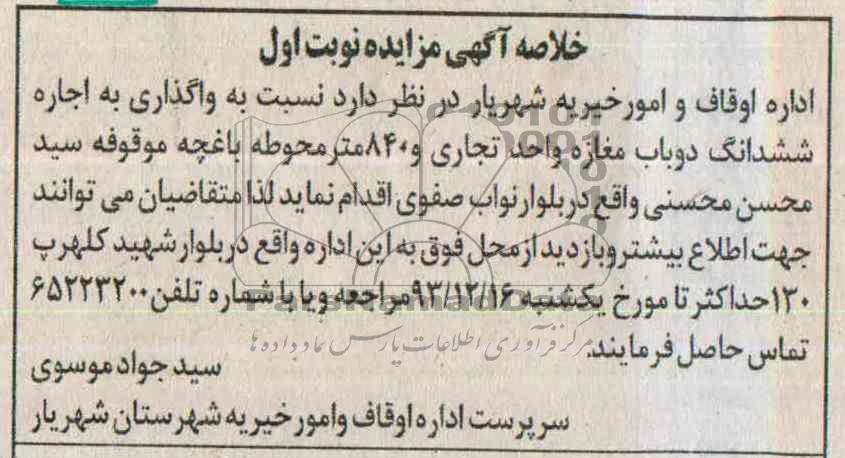 خلاصه آگهی مزایده نوبت اول
اداره اوقاف و امور خیریه شهریار در نظر دارد نسبت به واگذاری به اجاره
ششدانگ دو باب مغازه واحد تجاری و ۸۴۰ متر محوطه باغچه موقوفه سید
محسن محسنی واقع در بلوار نواب صفوی اقدام نماید لذا متقاضیان می توانند
جهت اطلاع بیشتر و بازدید از محل فوق به این اداره واقع در بلوار شهید کلهر پ
۱۳۰ حداکثر تا مورخ یکشنبه ۹۳/۱۲/۱۶ مراجعه و یا با شماره تلفن ۶۵۲۲۳۲۰۰
تماس حاصل فرمایند.
مرکز فرآوری اطلاعات پارس نماد داده ها
سید جواد موسوی
سرپرست اداره اوقاف و امور خیریه شهرستان شهریار